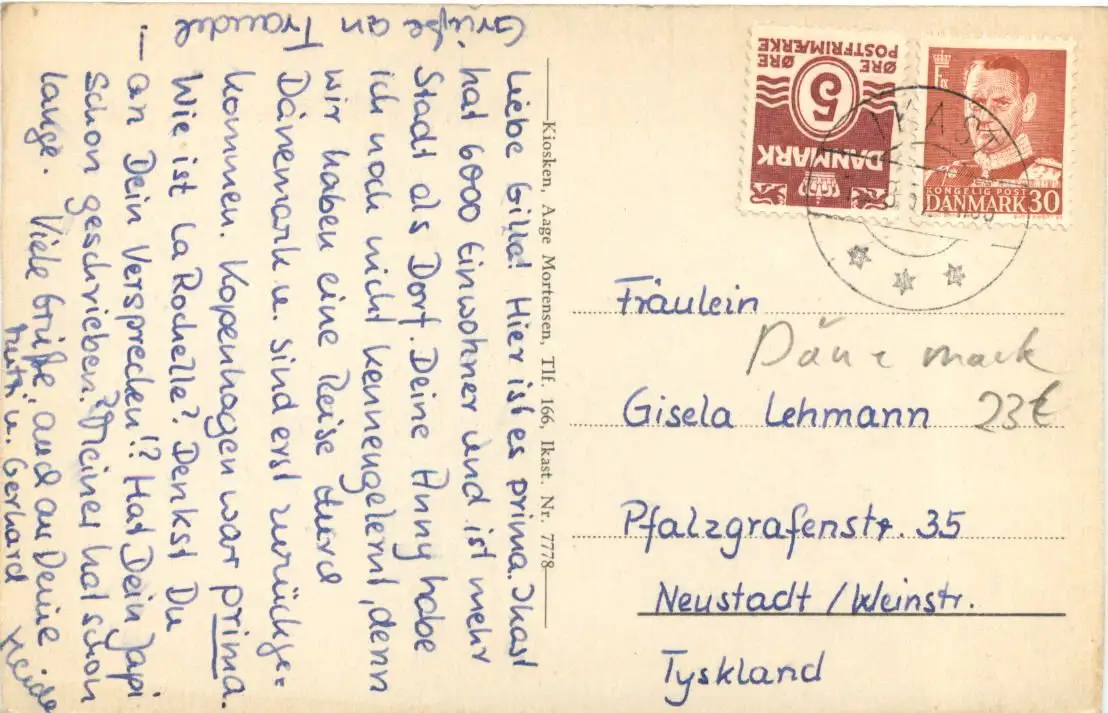 Liebe Gilla! Hier ist es prima. Ikast
hat 6000 Einwohner und ist mehr
Stadt als Dorf. Deine Anny habe
ich noch nicht kennengelernt, denn
wir haben eine Reise durch
Dänemark u. sind erst zurückge=
kommen. Kopenhagen war prima.
Wie ist La Rochelle? Denkst Du
an Dein Versprechen!? Hat Dein Japi
schon geschrieben? Meiner hat schon
lange. Viele Grüße, auch an Deine
Mutti u. Gerhard
Heide
Grüße an
Traudel
Kiosken, Aage Mortensen, Tlf. 166, Ikast. Nr. 7778
ØRE ØRE
POSTFRIMÆRKE
5
DANMARK
KONGELIG POST
DANMARK 30
IKAST
Fräulein
Dänemark
Gisela Lehmann
23€
Pfalzgrafenstr. 35
Neustadt / Weinstr.
Tyskland